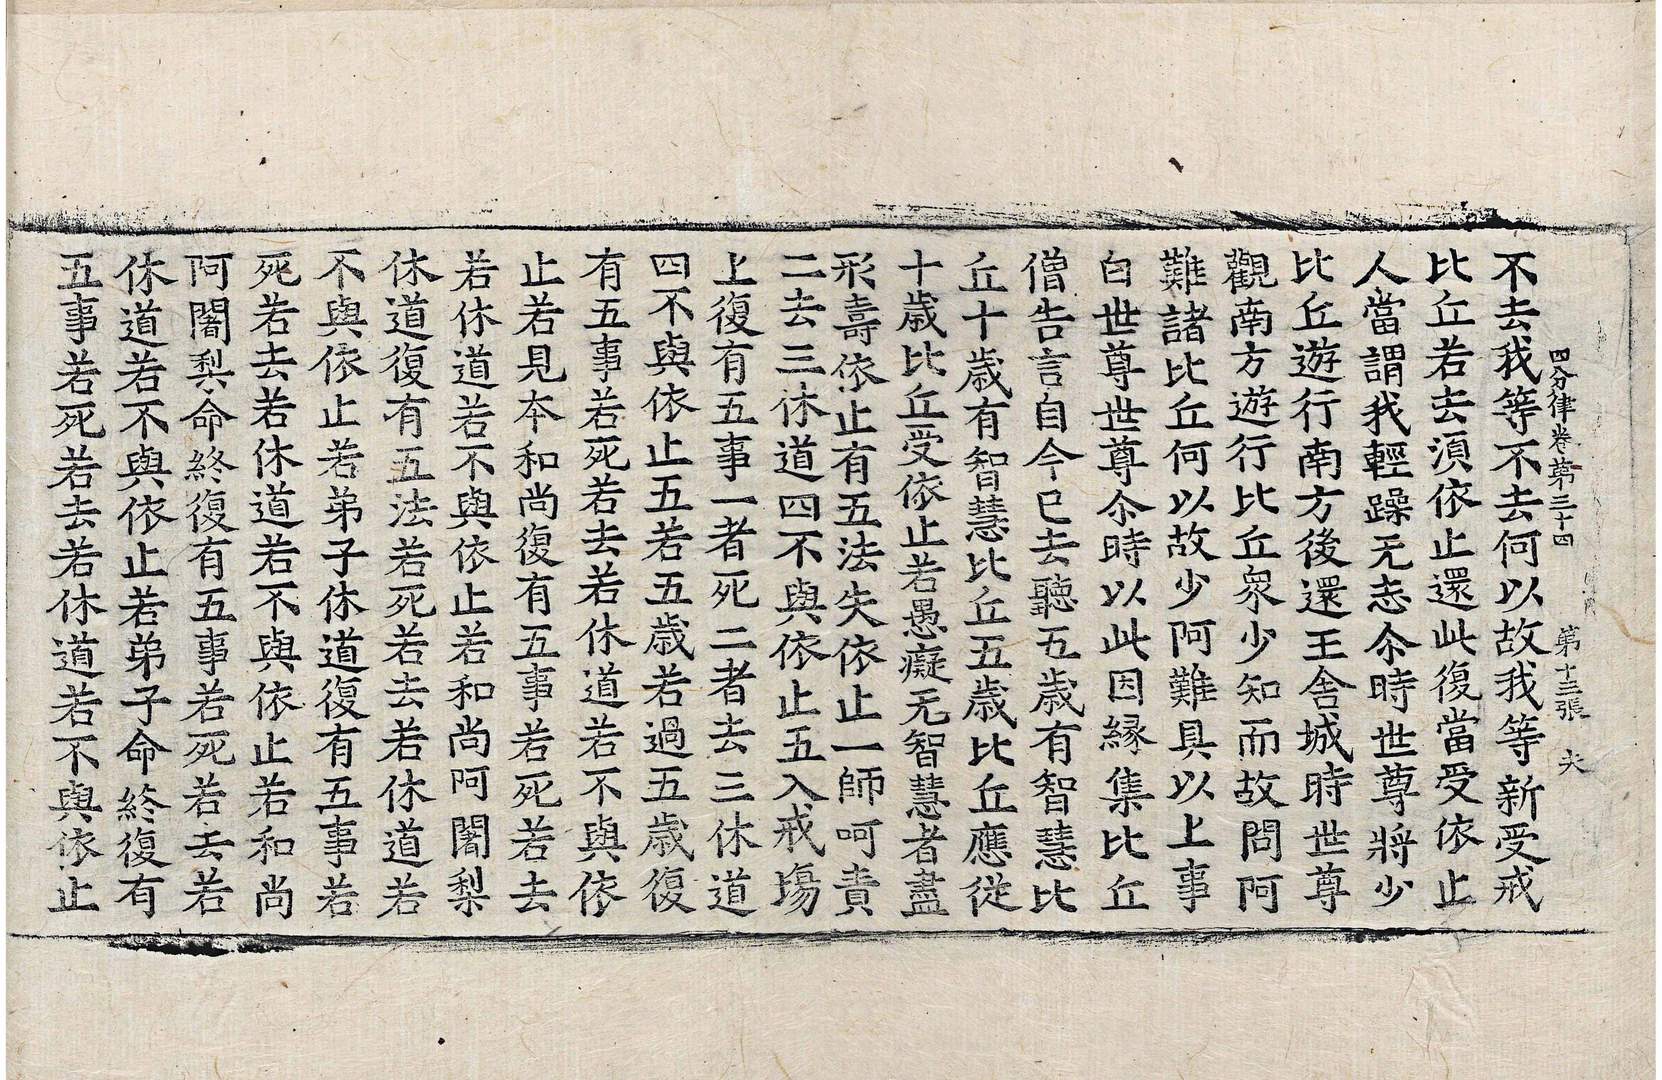 四分律卷第三十四　第十三張　夫
不去我等不去何以故我等新受戒
比丘若去湏依止還此復當受依止
人當謂我輕躁无志尒時世尊將少
比丘遊行南方後還王舍城時世尊
觀南方遊行比丘衆少知而故問阿
難諸比丘何以故少阿難具以上事
白世尊世尊尒時以此因縁集比丘
僧告言自今已去聽五歲有智慧比
丘十歲有智慧比丘五歲比丘應從
十歲比丘受依止若愚癡无智慧者盡
形壽依止有五法失依止一師呵責
二去三休道四不與依止五入戒場
上復有五事一者死二者去三休道
四不與依止五若五歲若過五歲復
有五事若死若去若休道若不與依
止若見本和尚復有五事若死若去
若休道若不與依止若和尚阿闍梨
休道復有五法若死若去若休道若
不與依止若弟子休道復有五事若
死若去若休道若不與依止若和尚
阿闍梨命終復有五事若死若去若
休道若不與依止若弟子命終復有
五事若死若去若休道若不與依止